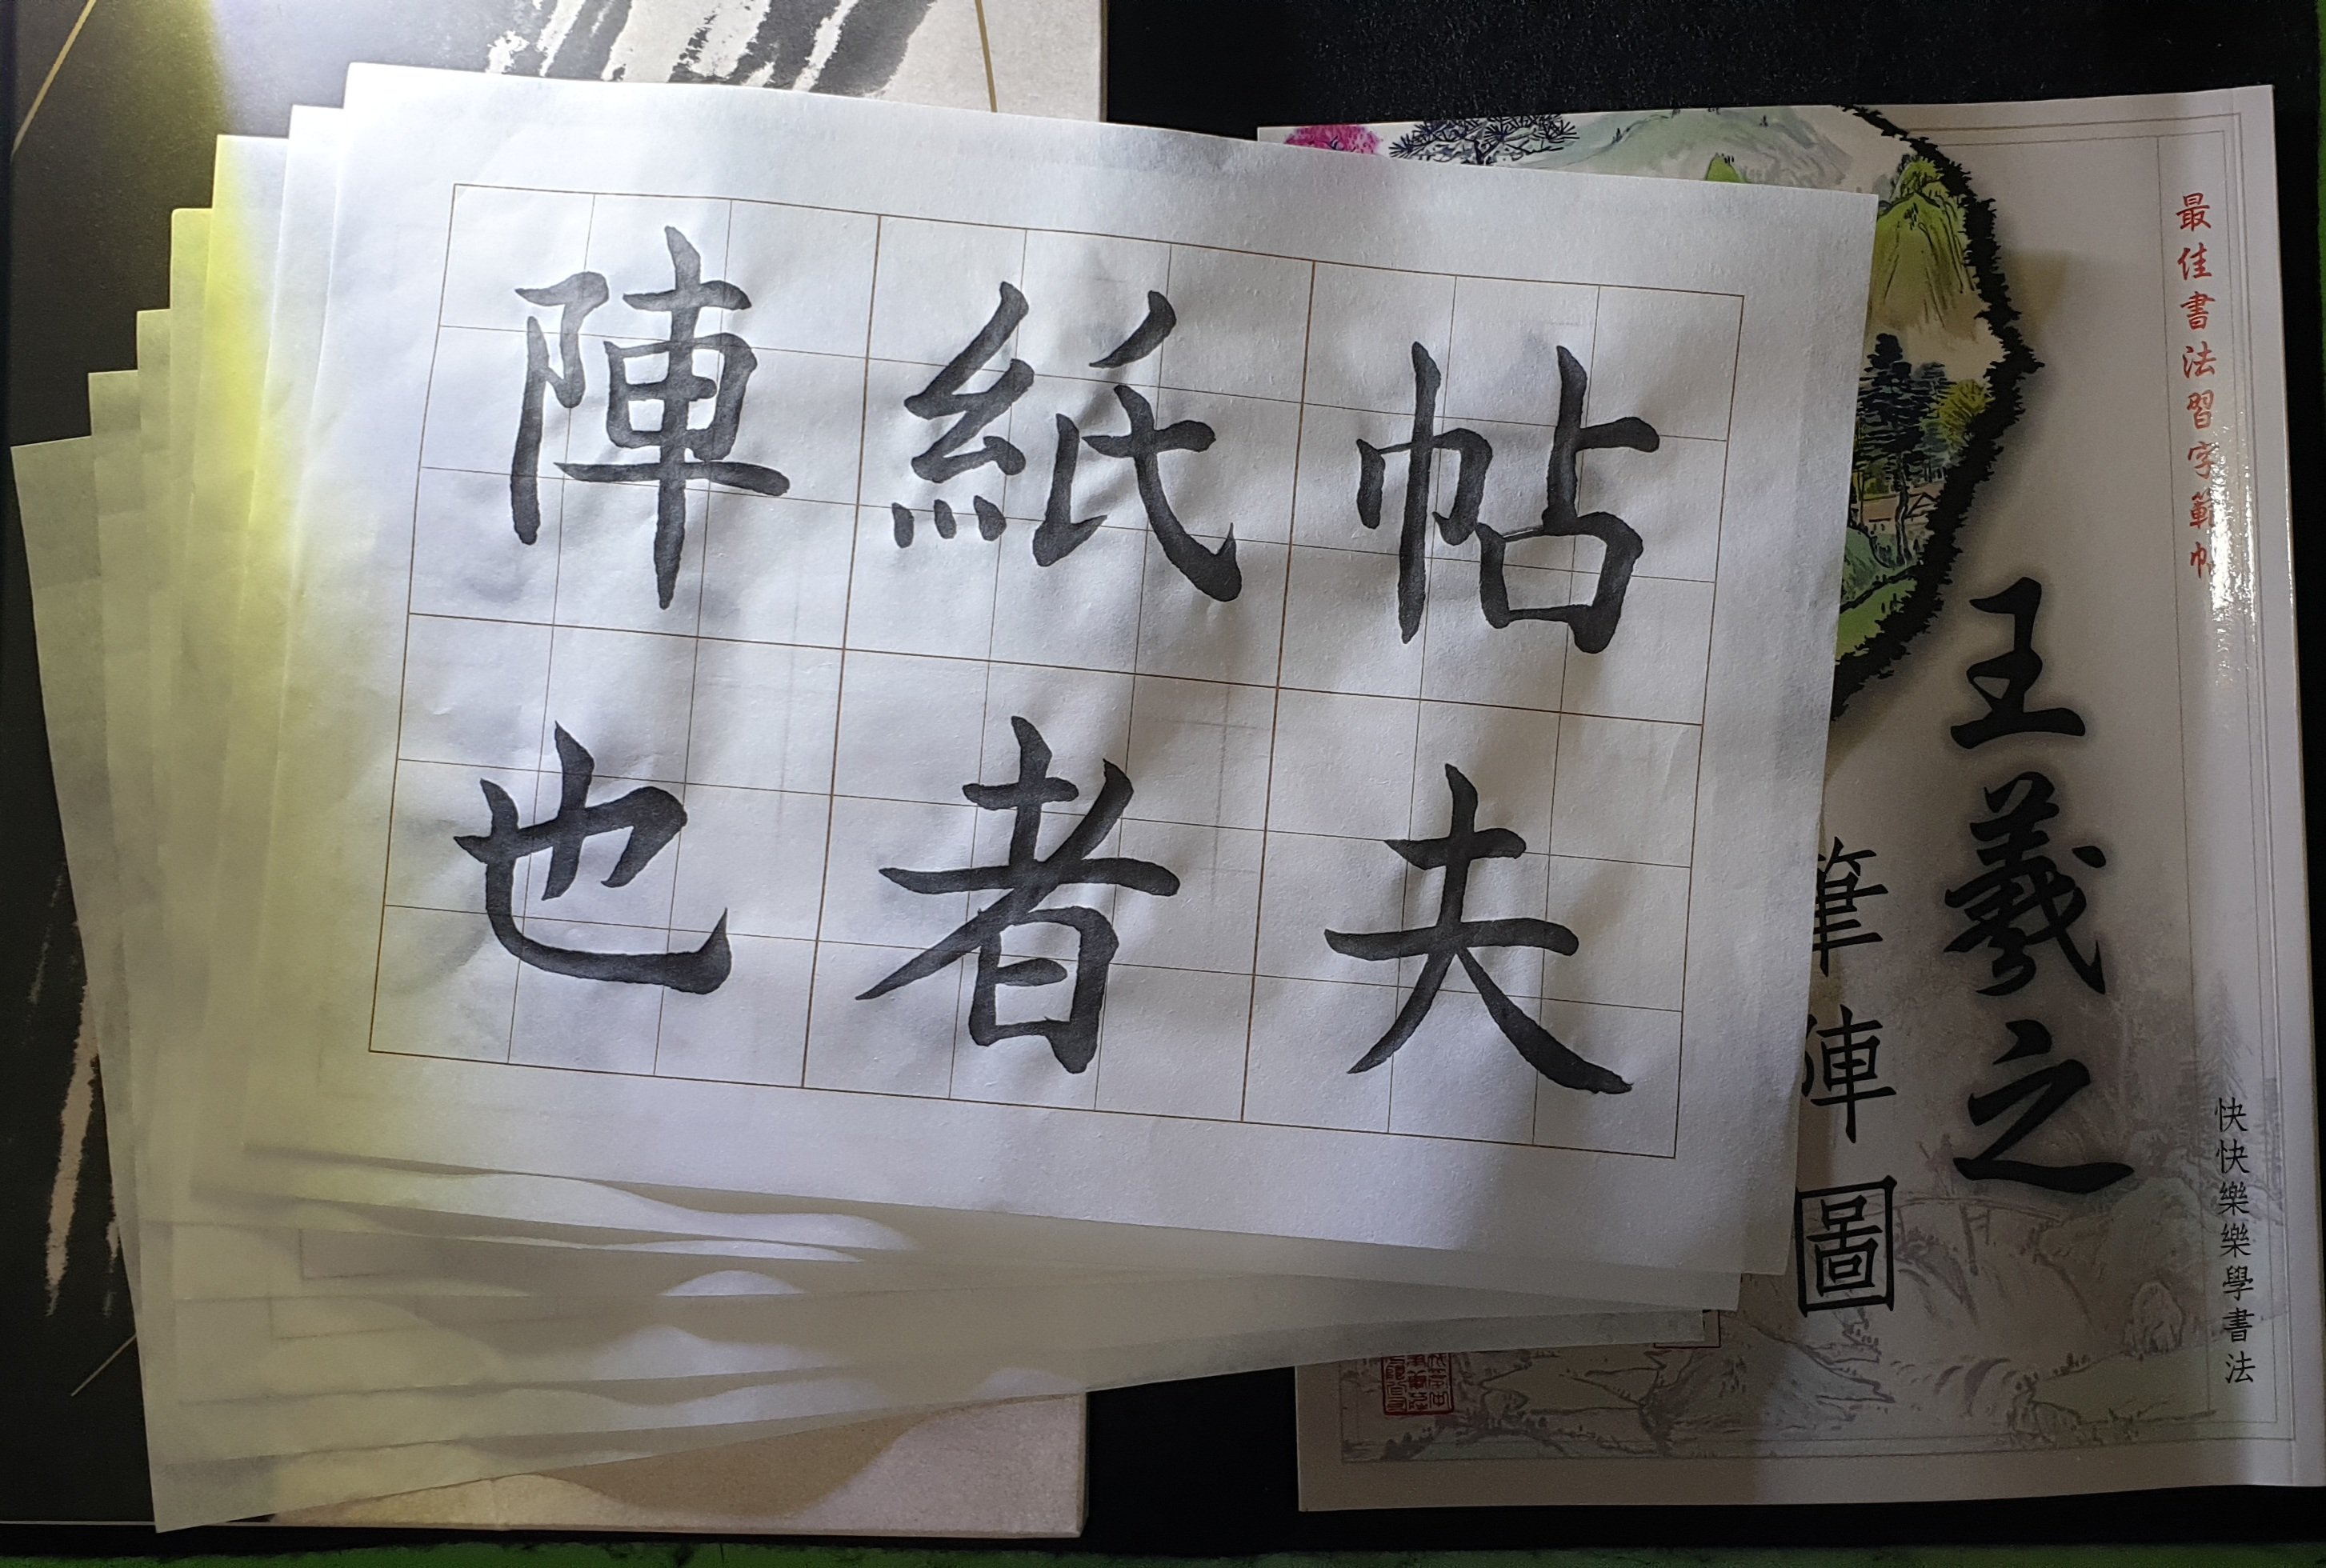 帖夫
紙者
陣也
最佳書法習字範帖
王羲之
筆陣圖
快快樂樂學書法